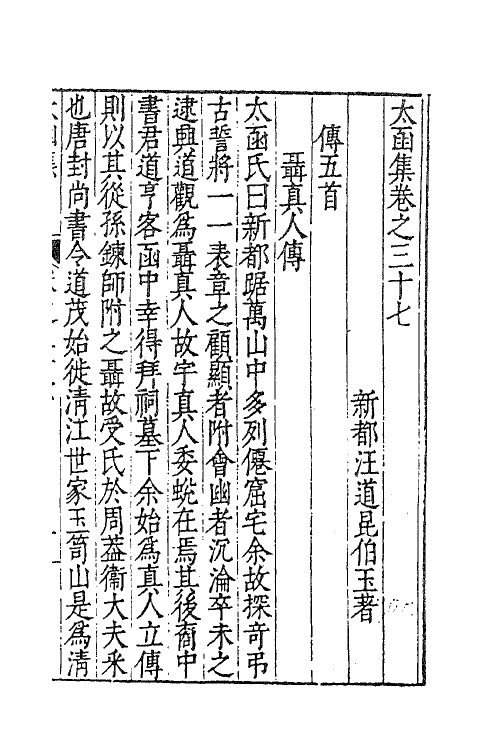 太函集卷之三十七
新都汪道昆伯玉著
傳五首
聶真人傳
太函氏曰新都踞萬山中多列僊窟宅余故探奇弔
古誓將一一表章之顧顯者附會幽者沉淪卒未之
逮興道觀爲聶真人故宇真人委蛻在焉其後裔中
書君道亨客函中幸得拜祠墓下余始爲真人立傳
則以其從孫鍊師附之聶故受氏於周葢衞大夫釆
也唐封尚書令道茂始徙淸江世家玉笥山是爲淸